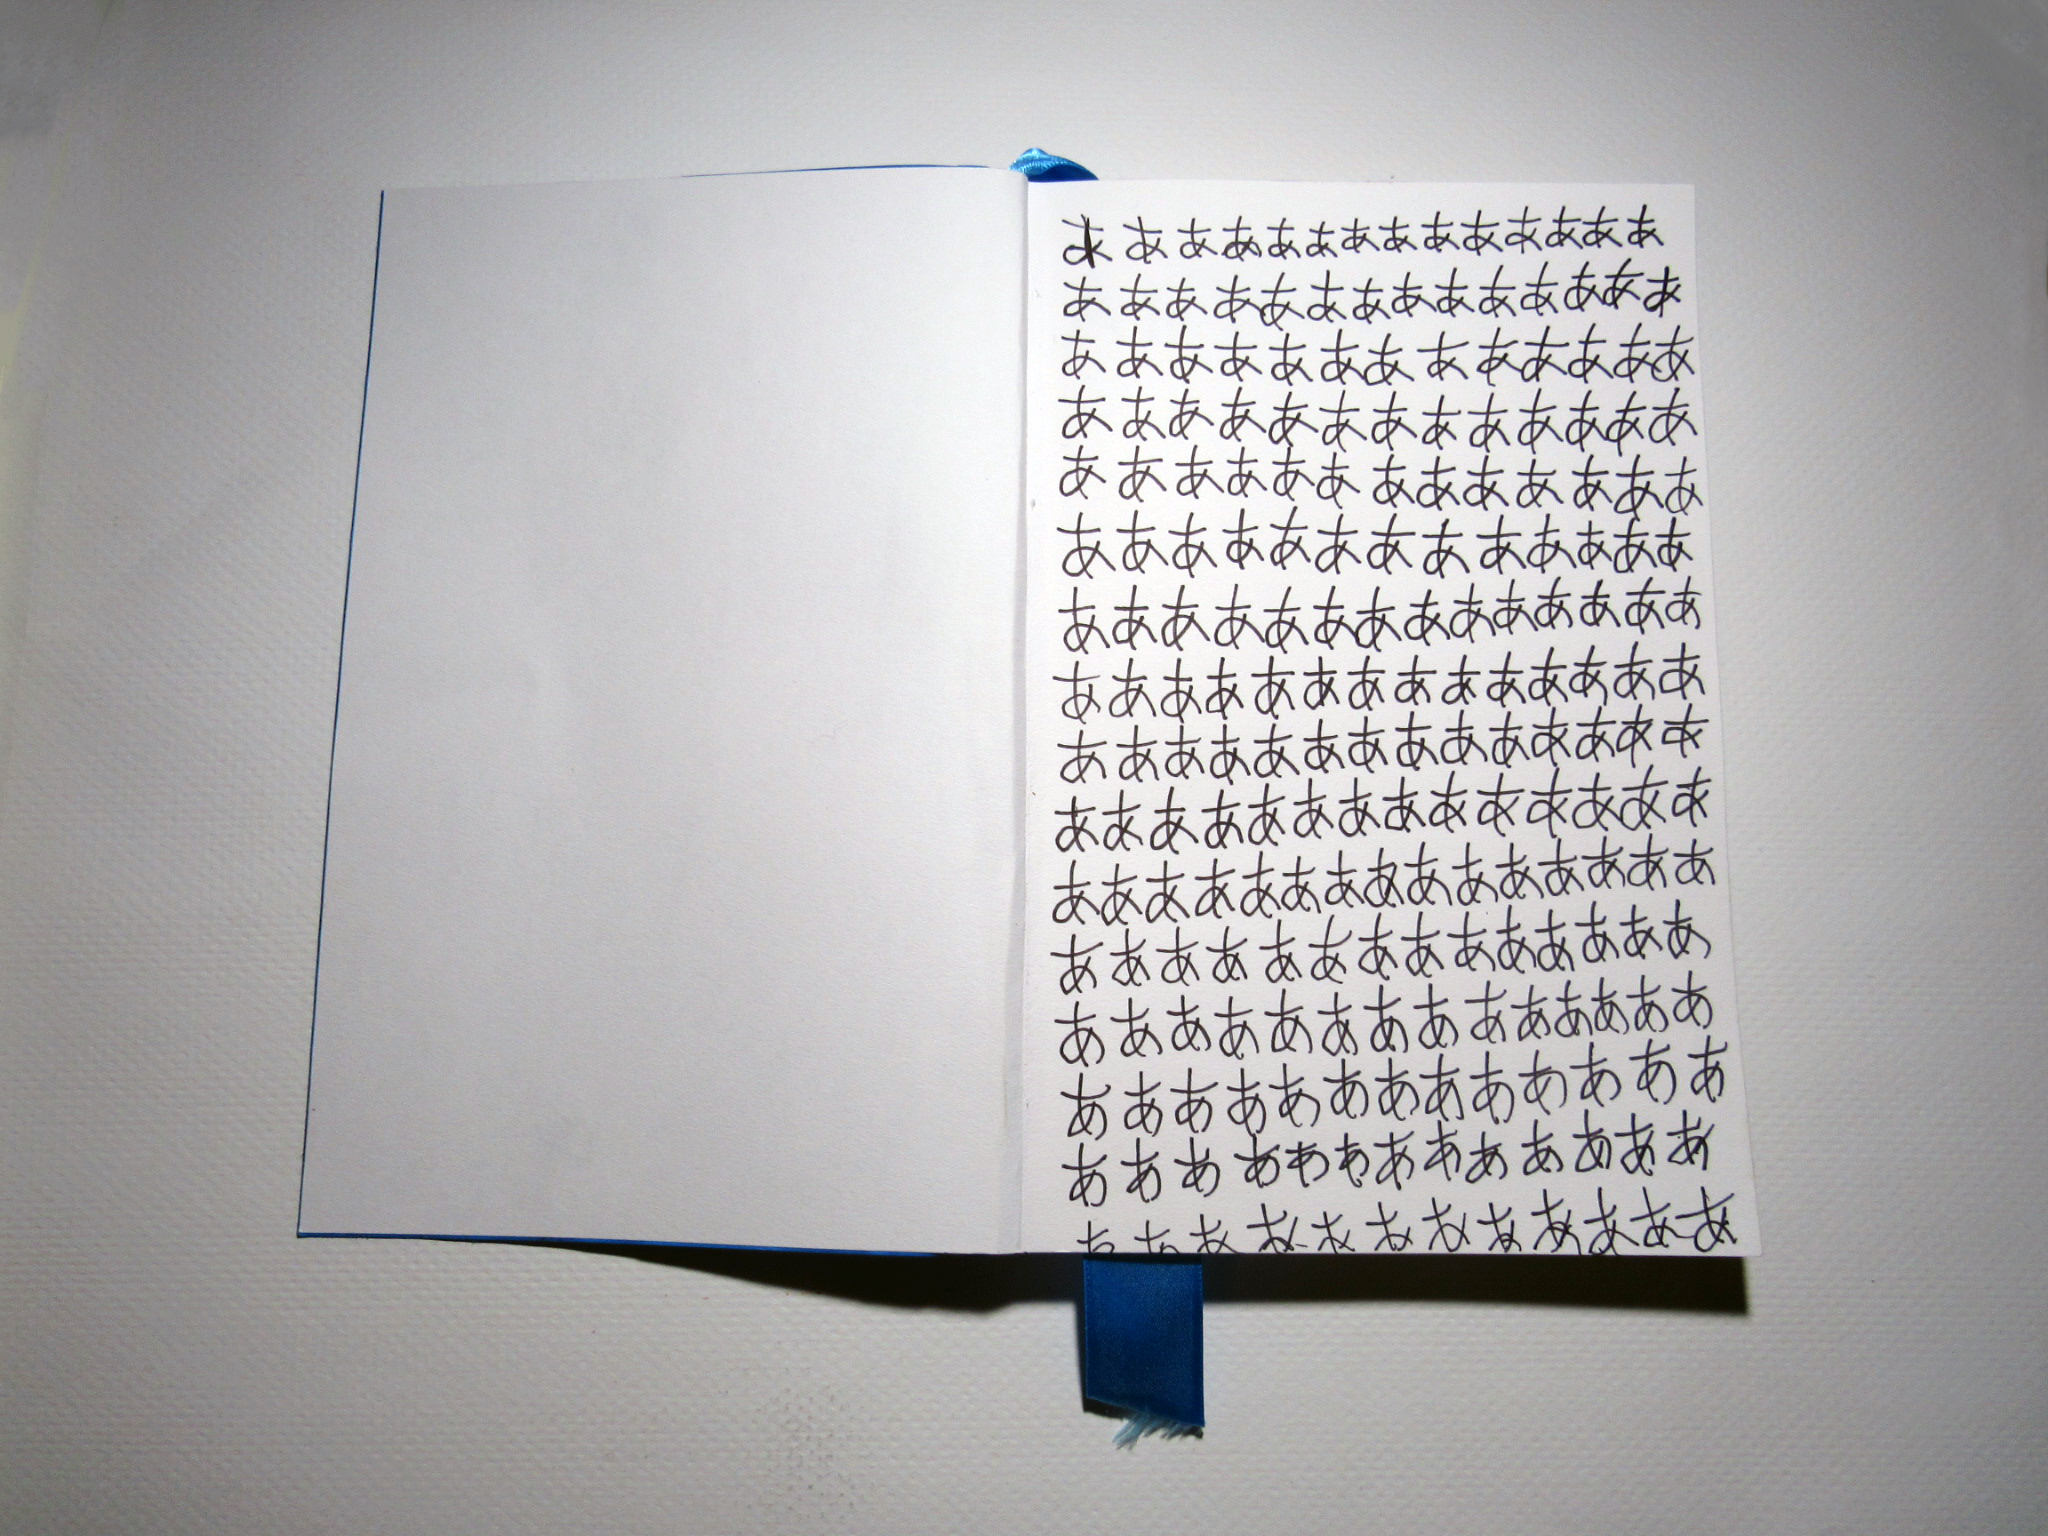 ああああああああああああああ
ああああああああああああああ
あああああああああああああ
あああああああああああああ
あああああああああああああ
あああああああああああああ
ああああああああああああああ
ああああああああああああああ
ああああああああああああああ
ああああああああああああああ
あああああああああああああああ
ああああああああああああああ
ああああああああああああああ
あああああああああああああ
あああああああああああああ
ああああああああああああ